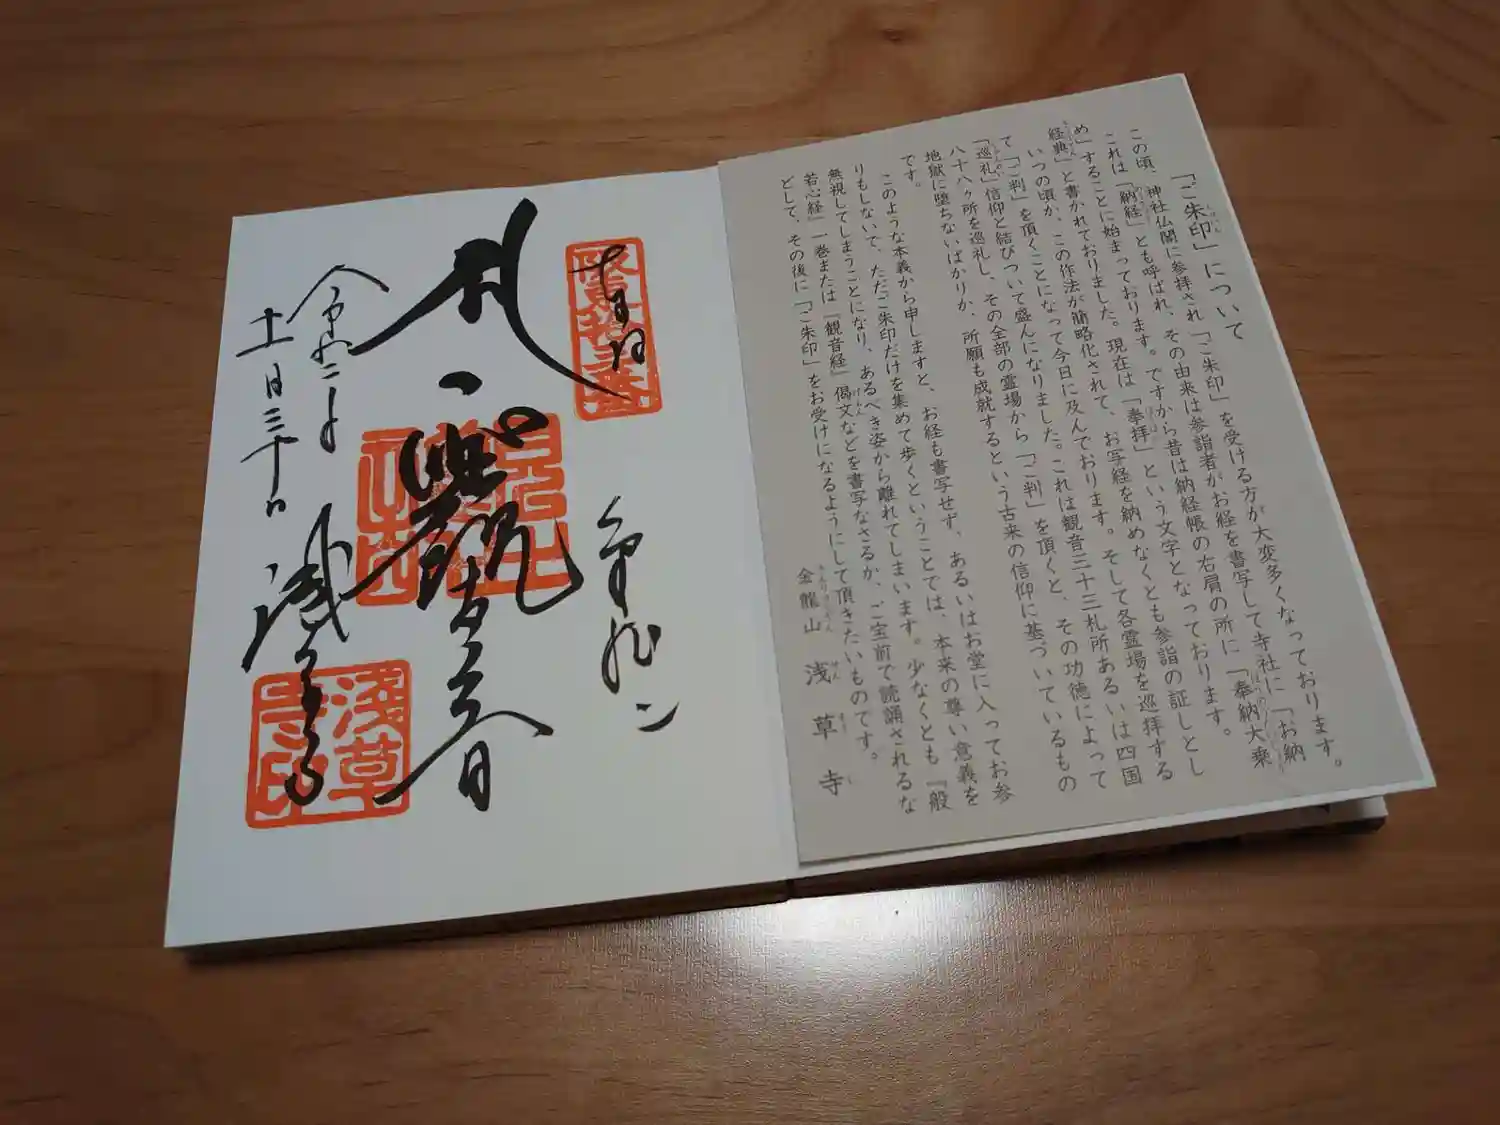 「ご朱印」について
この頃、神社仏閣に参拝され「ご朱印」を受ける方が大変多くなっております。
これは「納経」とも呼ばれ、その由来は参詣者がお経を書写して寺社に「お納
め」することに始まっております。ですから昔は納経帳の右肩の所に「奉納大乗
経典」と書かれておりました。現在は「奉拝」という文字となっております。
いつの頃か、この作法が簡略化されて、お写経を納めなくとも参詣の証しとし
て「ご判」を頂くことになって今日に及んでおります。そして各霊場を巡拝する
「巡礼」信仰と結びついて盛んになりました。これは観音三十三札所あるいは四国
八十八ヶ所を巡礼し、その全部の霊場から「ご判」を頂くと、その功徳によって
地獄に堕ちないばかりか、所願も成就するという古来の信仰に基づいているもの
です。
このような本義から申しますと、お経も書写せず、あるいはお堂に入ってお参
りもしないで、ただご朱印だけを集めて歩くということでは、本来の尊い意義を
無視してしまうことになり、あるべき姿から離れてしまいます。少なくとも『般
若心経』一巻または『観音経』偈文などを書写なさるか、ご宝前で読誦されるな
どして、その後に「ご朱印」をお受けになるようにして頂きたいものです。
金龍山 浅草寺
奉拝
令和二年
十一月三十日
浅草寺
浅草
寺印